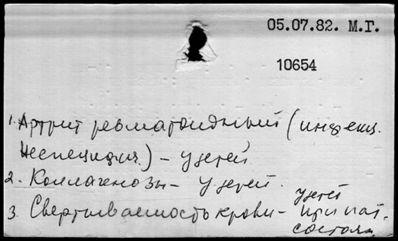 05.07.82. М.Г.
10654
1. Артрит ревматоидный (инфекц.
неспецифич.) - у детей
2. Коллагенозы - у детей.
3. Свертываемость крови - у детей
при пат.
состоян.